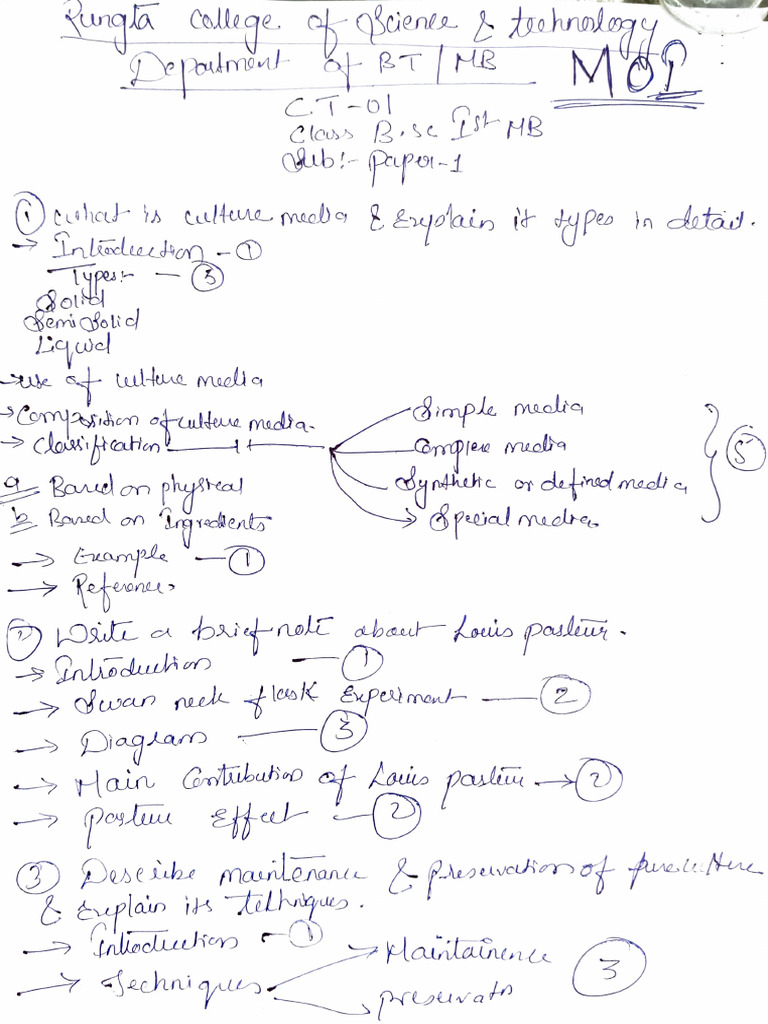 Rungta College of Science & technology
Department of BT/MB MOP
C.T-01
Class B.sc Ist MB
Sub:- paper-1
① what is culture media & Explain it types in detail.
→ Introduction - ①
Types:- — ③
Solid
Semi Solid
Liquid
→ use of culture media
→ Composition of culture media. Simple media
→ Classification Complex media ⑤
a Based on physical Synthetic or defined media
b Based on Ingredients Special media
→ Example — ①
→ References
② Write a brief note about Louis pasteur.
→ Introduction — ①
→ Swan neck flask Experiment — ②
→ Diagram — ③
→ Main Contribution of Louis pasteur → ②
→ Pasteur Effect — ②
③ Describe maintenance & preservation of pure culture
& Explain its techniques.
→ Introduction - ①
→ Techniques Maintainence ③
preservatn